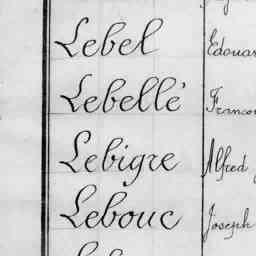 Lebel Edouar
Lebellé Franço
Lebigre Alfred
Lebouc Joseph